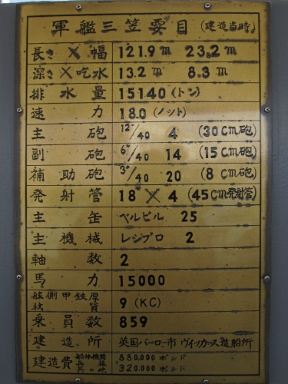 軍艦三笠要目(建造当時)
長さ×幅 121.9m 23.2m
深さ×吃水 13.2m 8.3m
排水量 15140(トン)
速力 18.0(ノット)
主砲 12"/40 4 (30Cm砲)
副砲 6"/40 14 (15Cm砲)
補助砲 3"/40 20 (8Cm砲)
発射管 18"×4 (45Cm発射管)
主缶 ベルビル 25
主機械 レシプロ 2
軸数 2
馬力 15000
舷側甲鉄厚 9"(KC)
乗員数 859
建造所 英国バーロー市ヴィッカース造船所
建造費 船体機関 880,000ポンド
320,000ポンド